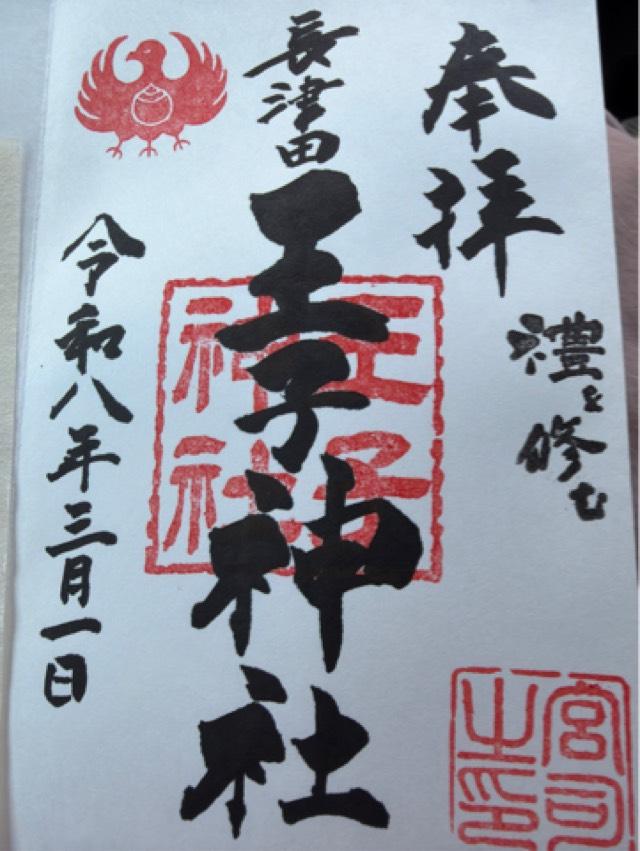 奉拝
禮を修む
長津田
王子神社
王子神社
令和八年三月一日
宮司之印